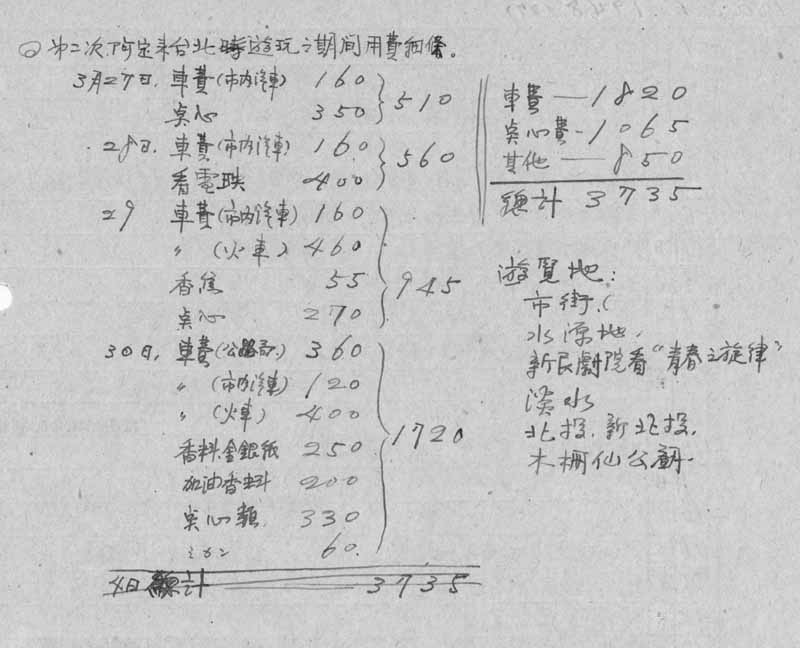 ○ 第二次阿定来台北時遊玩之期间用費細條。
3月27日. 車費(市内汽車) 160
点心 350
510
28日. 車費(市内汽車) 160
看電映 400
560
29 車費(市内汽車) 160
〃 (火車) 460
香蕉 55
点心 270
945
30日. 車費(公路局.) 360
〃 (市内汽車) 120
〃 (火車) 400
香料金銀紙 250
加油香料 200
点心類 330
ミカン 60.
1720
4日總計 3735
車費 — 1820
点心費 - 1065
其他 — 850
總計 3735
遊覽地:
市街.
水源地.
新民劇院看"青春之旋律"
淡水
北投. 新北投.
木柵仙公廟.